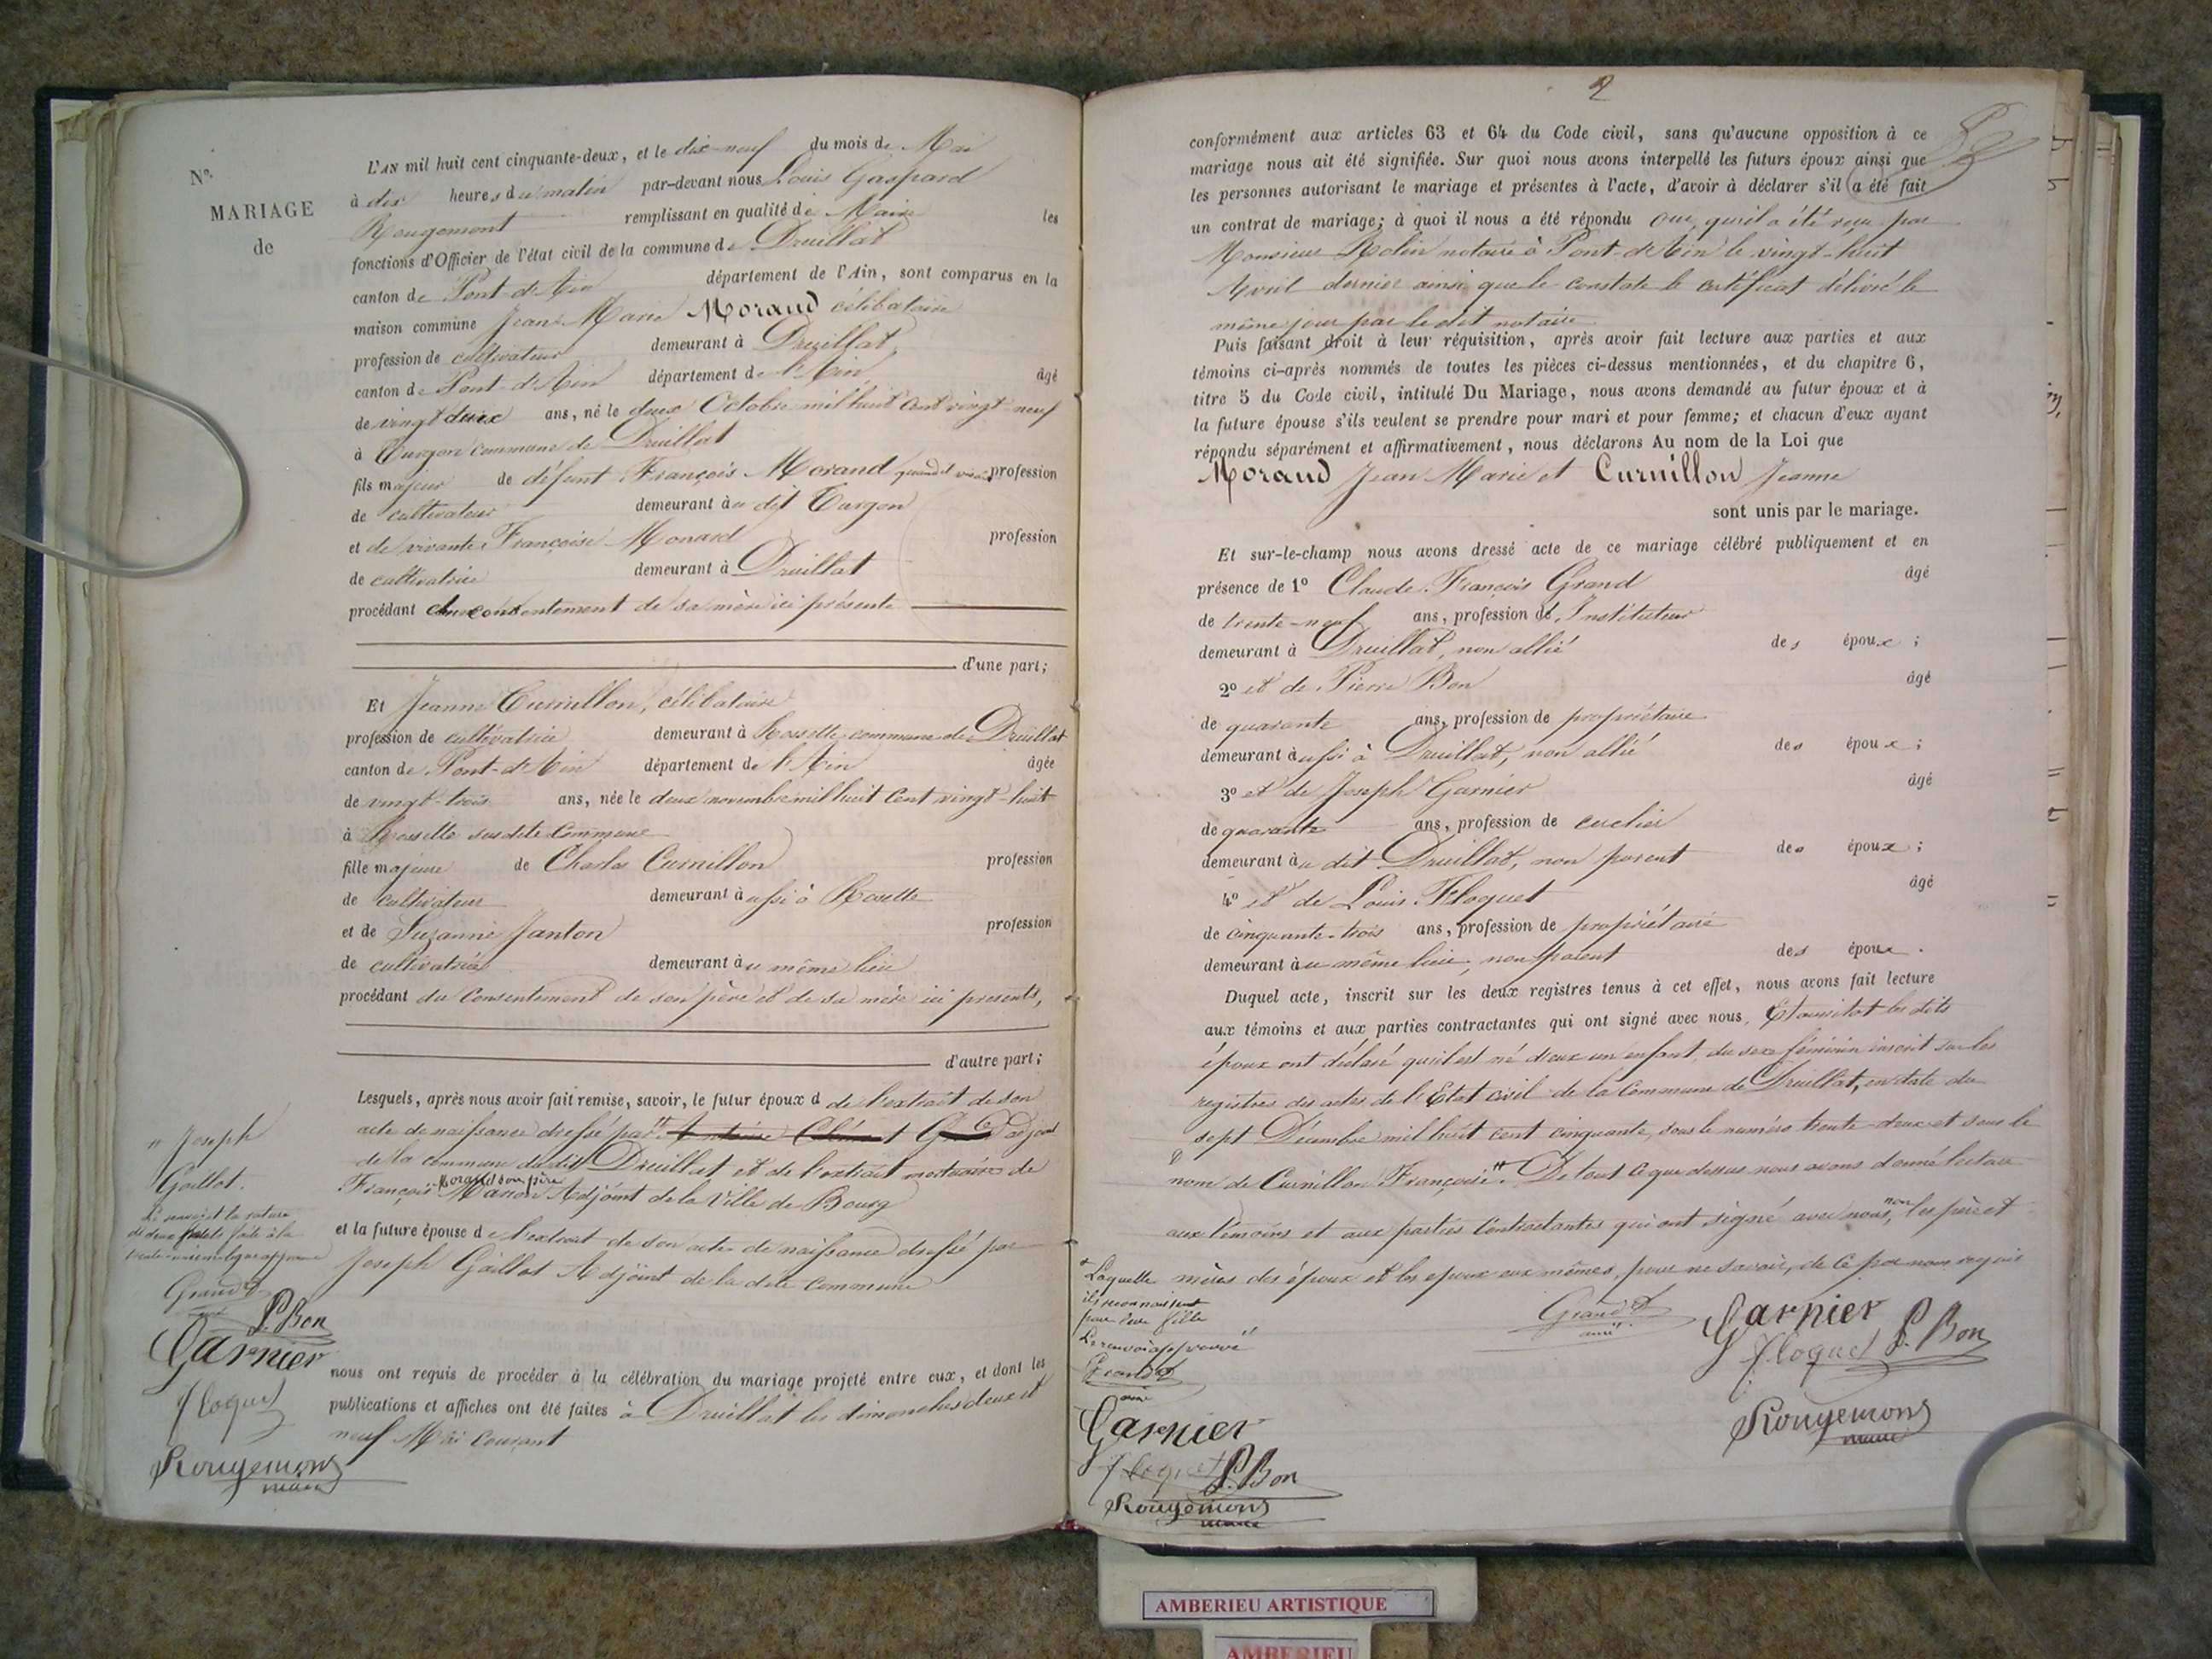 N°.
MARIAGE
de
L'AN mil huit cent cinquante-deux, et le dix-neuf du mois de Mai
à dix heures du matin par-devant nous Louis Gaspard
Rougemont remplissant en qualité de Maire les
fonctions d'Officier de l'état civil de la commune de Druillat
canton de Pont-d'Ain département de l'Ain, sont comparus en la
maison commune Jean Marie Morand célibataire
profession de cultivateur demeurant à Druillat
canton de Pont-d'Ain département de l'Ain âgé
de vingt deux ans, né le deux Octobre mil huit cent vingt-neuf
à Turgon commune de Druillat
fils majeur de défunt François Morand quand il vivait profession
de cultivateur demeurant au dit Turgon
et de vivante Françoise Monard profession
de cultivatrice demeurant à Druillat
procédant du consentement de sa mère ici présente
d'une part;
Et Jeanne Curnillon, célibataire
profession de cultivatrice demeurant à Rossette commune de Druillat
canton de Pont-d'Ain département de l'Ain âgée
de vingt-trois ans, née le deux novembre mil huit cent vingt-huit
à Rossette susdite Commune
fille majeure de Charles Curnillon profession
de cultivateur demeurant aussi à Rosette
et de Suzanne Janton profession
de cultivatrice demeurant au même lieu
procédant du consentement de son père et de sa mère ici présents,
d'autre part;
Lesquels, après nous avoir fait remise, savoir, le futur époux d de l'extrait de son
acte de naissance dressé par adjoint
de la commune du dit Druillat et de l'extrait mortuaire de
Morand son père
François Marion Adjoint de la Ville de Bourg
et la future épouse de l'extrait de son acte de naissance dressé par
Joseph Gaillot Adjoint de la dite commune
nous ont requis de procéder à la célébration du mariage projeté entre eux, et dont les
publications et affiches ont été faites à Druillat les dimanches deux et
neuf Mai courant
" Joseph
Gaillot.
Le renvoi et la rature
faite à la
approuvé
Grand
P. Bon
Garnier
Floquet
Rougemont
maire
2
conformément aux articles 63 et 64 du Code civil, sans qu'aucune opposition à ce
mariage nous ait été signifiée. Sur quoi nous avons interpellé les futurs époux ainsi que
les personnes autorisant le mariage et présentes à l'acte, d'avoir à déclarer s'il a été fait
un contrat de mariage; à quoi il nous a été répondu oui, qu'il a été reçu par
Monsieur Rolin notaire à Pont-d'Ain le vingt-huit
Avril dernier ainsi que le constate le certificat délivré le
même jour par le dit notaire
Puis faisant droit à leur réquisition, après avoir fait lecture aux parties et aux
témoins ci-après nommés de toutes les pièces ci-dessus mentionnées, et du chapitre 6,
titre 5 du Code civil, intitulé Du Mariage, nous avons demandé au futur époux et à
la future épouse s'ils veulent se prendre pour mari et pour femme; et chacun d'eux ayant
répondu séparément et affirmativement, nous déclarons Au nom de la Loi que
Morand Jean Marie et Curnillon Jeanne
sont unis par le mariage.
Et sur-le-champ nous avons dressé acte de ce mariage célébré publiquement et en
présence de 1° Claude François Grand âgé
de trente-neuf ans, profession de Instituteur
demeurant à Druillat, non allié des époux;
2° et de Pierre Bon âgé
de quarante ans, profession de propriétaire
demeurant aussi à Druillat, non allié des époux;
3° et de Joseph Garnier âgé
de quarante ans, profession de
demeurant au dit Druillat, non parent des époux;
4° et de Louis Floquet âgé
de cinquante-trois ans, profession de propriétaire
demeurant au même lieu, non parent des époux.
Duquel acte, inscrit sur les deux registres tenus à cet effet, nous avons fait lecture
aux témoins et aux parties contractantes qui ont signé avec nous, Et aussitot les dits
époux ont déclaré qu'il est né d'eux un enfant du sexe féminin inscrit sur les
registres des actes de l'Etat civil de la Commune de Druillat, en date du
sept Décembre mil huit cent cinquante, sous le numéro trente-deux et sous le
nom de Curnillon Françoise". De tout ce que dessus nous avons donné lecture
aux témoins et aux parties contractantes qui ont signé avec nous, non les père et
mères des époux et les époux eux mêmes, pour ne savoir, de ce par nous requis
" Laquelle
ils reconnaissent
pour leur fille
Le renvoi approuvé
Grand
Garnier
Floquet P. Bon
Rougemont
maire
Grand
Garnier
Floquet P. Bon
Rougemont
maire
AMBERIEU ARTISTIQUE
AMBERIEU